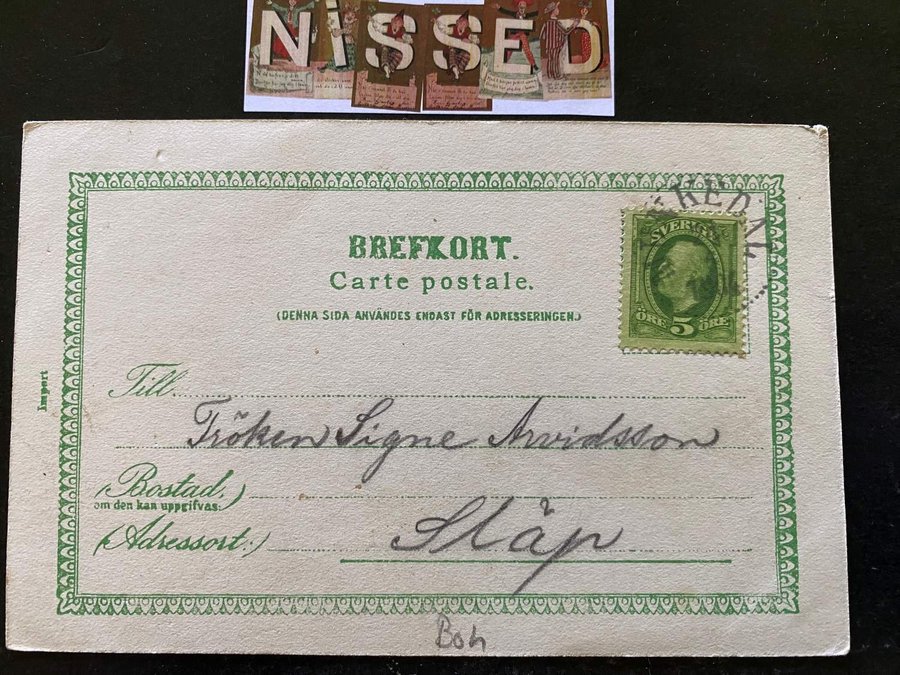 NiSSED
BREFKORT.
Carte postale.
(DENNA SIDA ANVÄNDES ENDAST FÖR ADRESSERINGEN.)
SVERIGE
ÖRE 5 ÖRE
Import
Till
Fröken Signe Arvidsson
(Bostad:)
om den kan uppgifvas:
(Adressort:)
Släp
Boh